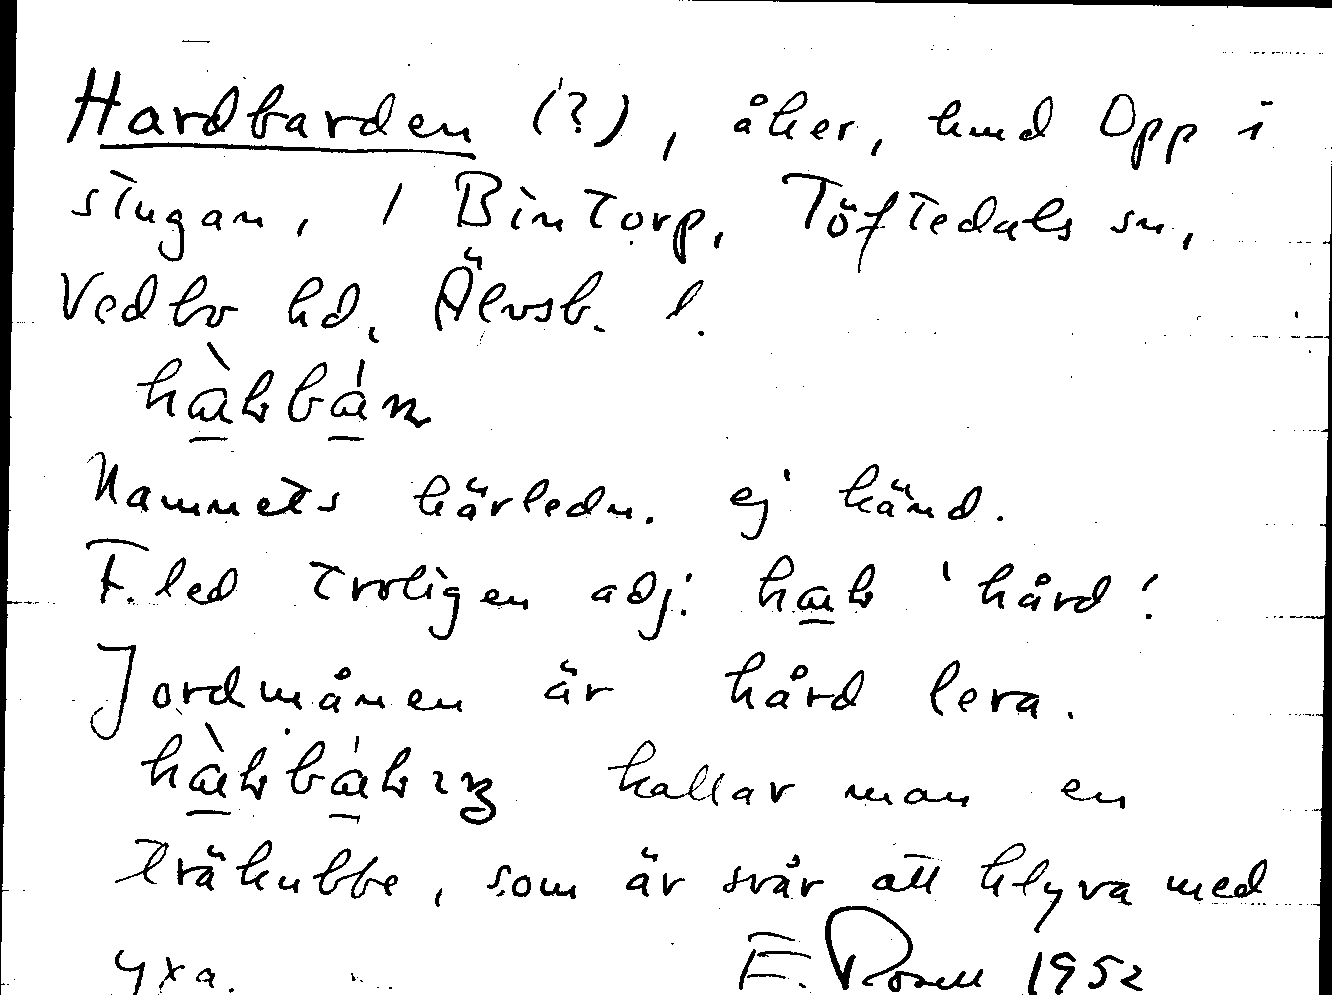 Hardbarden (?), åker, hmd Opp i
stugan, 1 Bintorp, Töftedals sn,
Vedbo hd, Älvsb. l.
Namnets härledn. ej känd.
F. led troligen adj. 'hård'.
Jordmånen är hård lera.
kallar man en
träkubbe, som är svår att klyva med
yxa. E. Rosell 1952